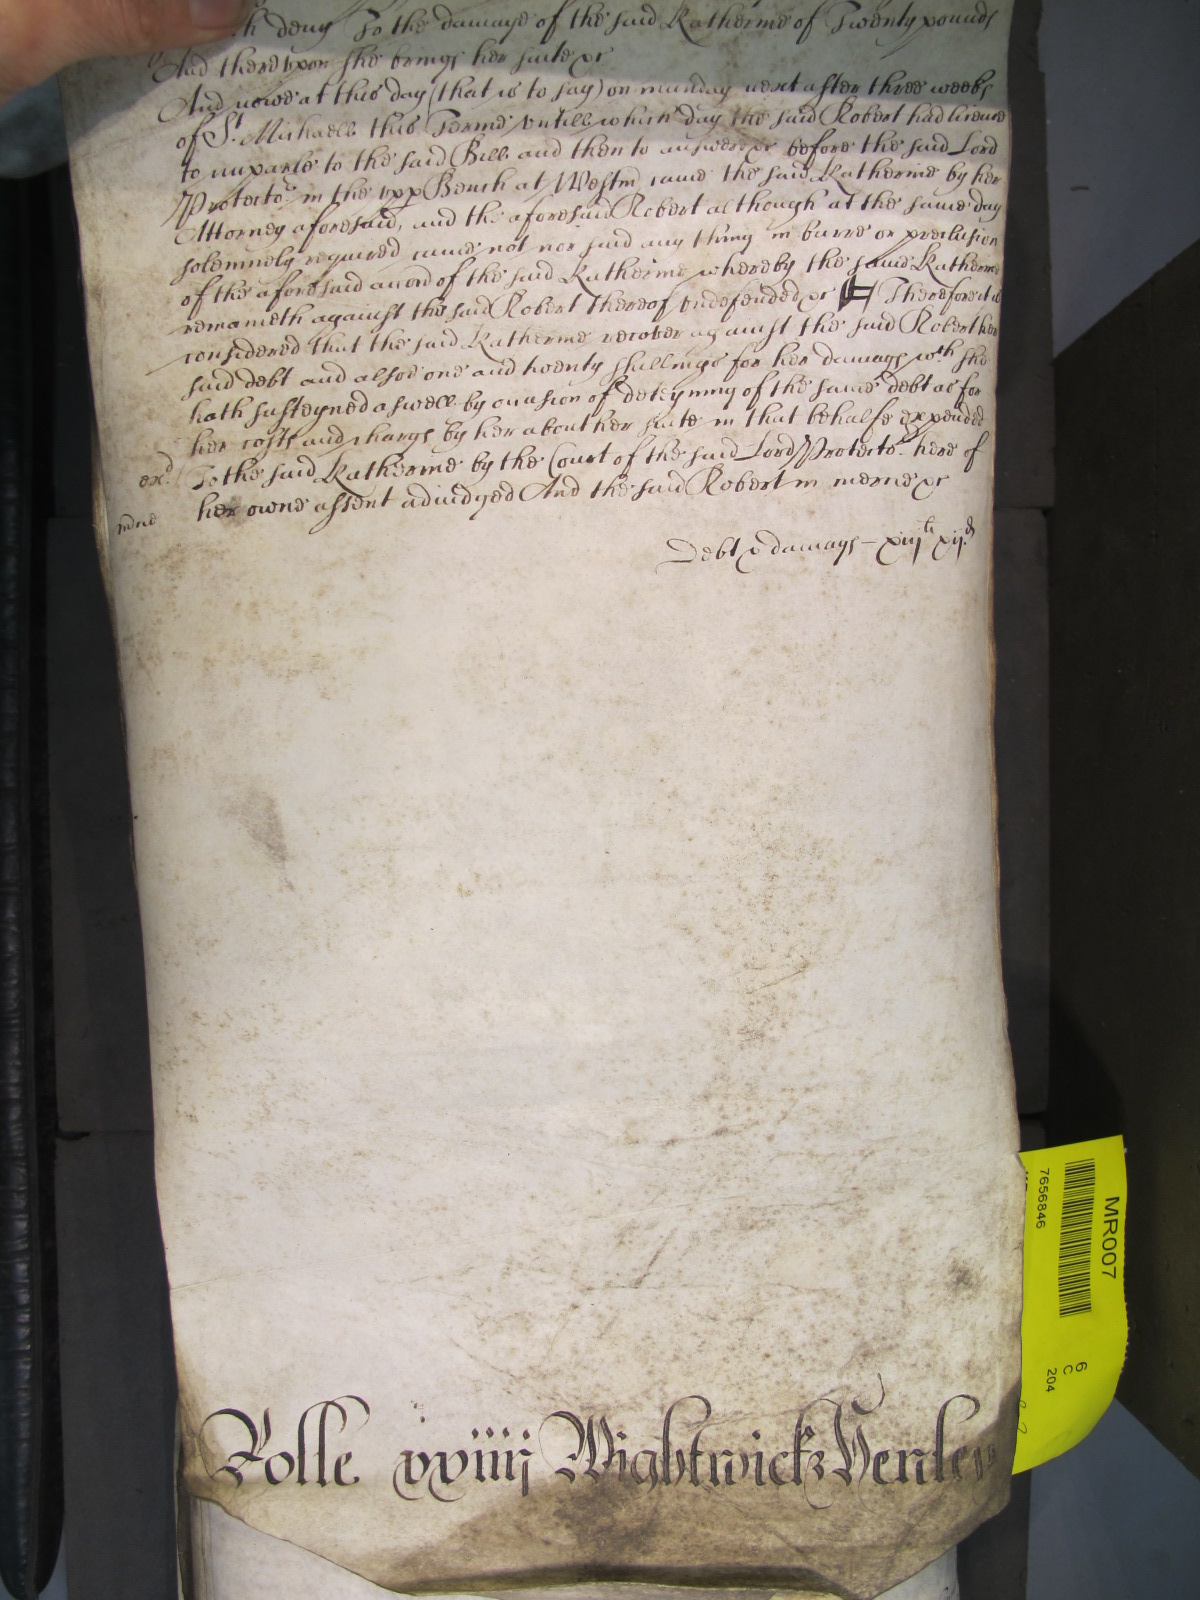 deny To the damage of the said Katherine of Twenty pounds
And thereupon she brings her suite &c
And nowe at this day (that is to say) on munday next after three weeks
of St. Michaell this Terme untill which day the said Robert had licence
to imparle to the said Bill and then to answere &c before the said Lord
Protector in the upp Bench at Westm came the said Katherine by her
Attorney aforesaid, and the aforesaid Robert although at the same day
solemnely required came not nor said any thing in barre or preclusion
of the aforesaid accon of the said Katherine whereby the same Katherine
remaineth against the said Robert thereof undefended &c Therefore it is
considered that the said Katherine recover against the said Robert her
said debt and alsoe one and twenty shillings for her damags wch she
hath susteyned aswell by occasion of deteyning of the same debt as for
her costs and chargs by her about her suite in that behalfe expended
To the said Katherine by the Court of the said Lord Protector here of
her owne assent adiudged And the said Robert in mercie &c
Debt & damags - xiijli xijd
Rolle xxiiij Wightwick Henley
MR007
7656846
6
C
204